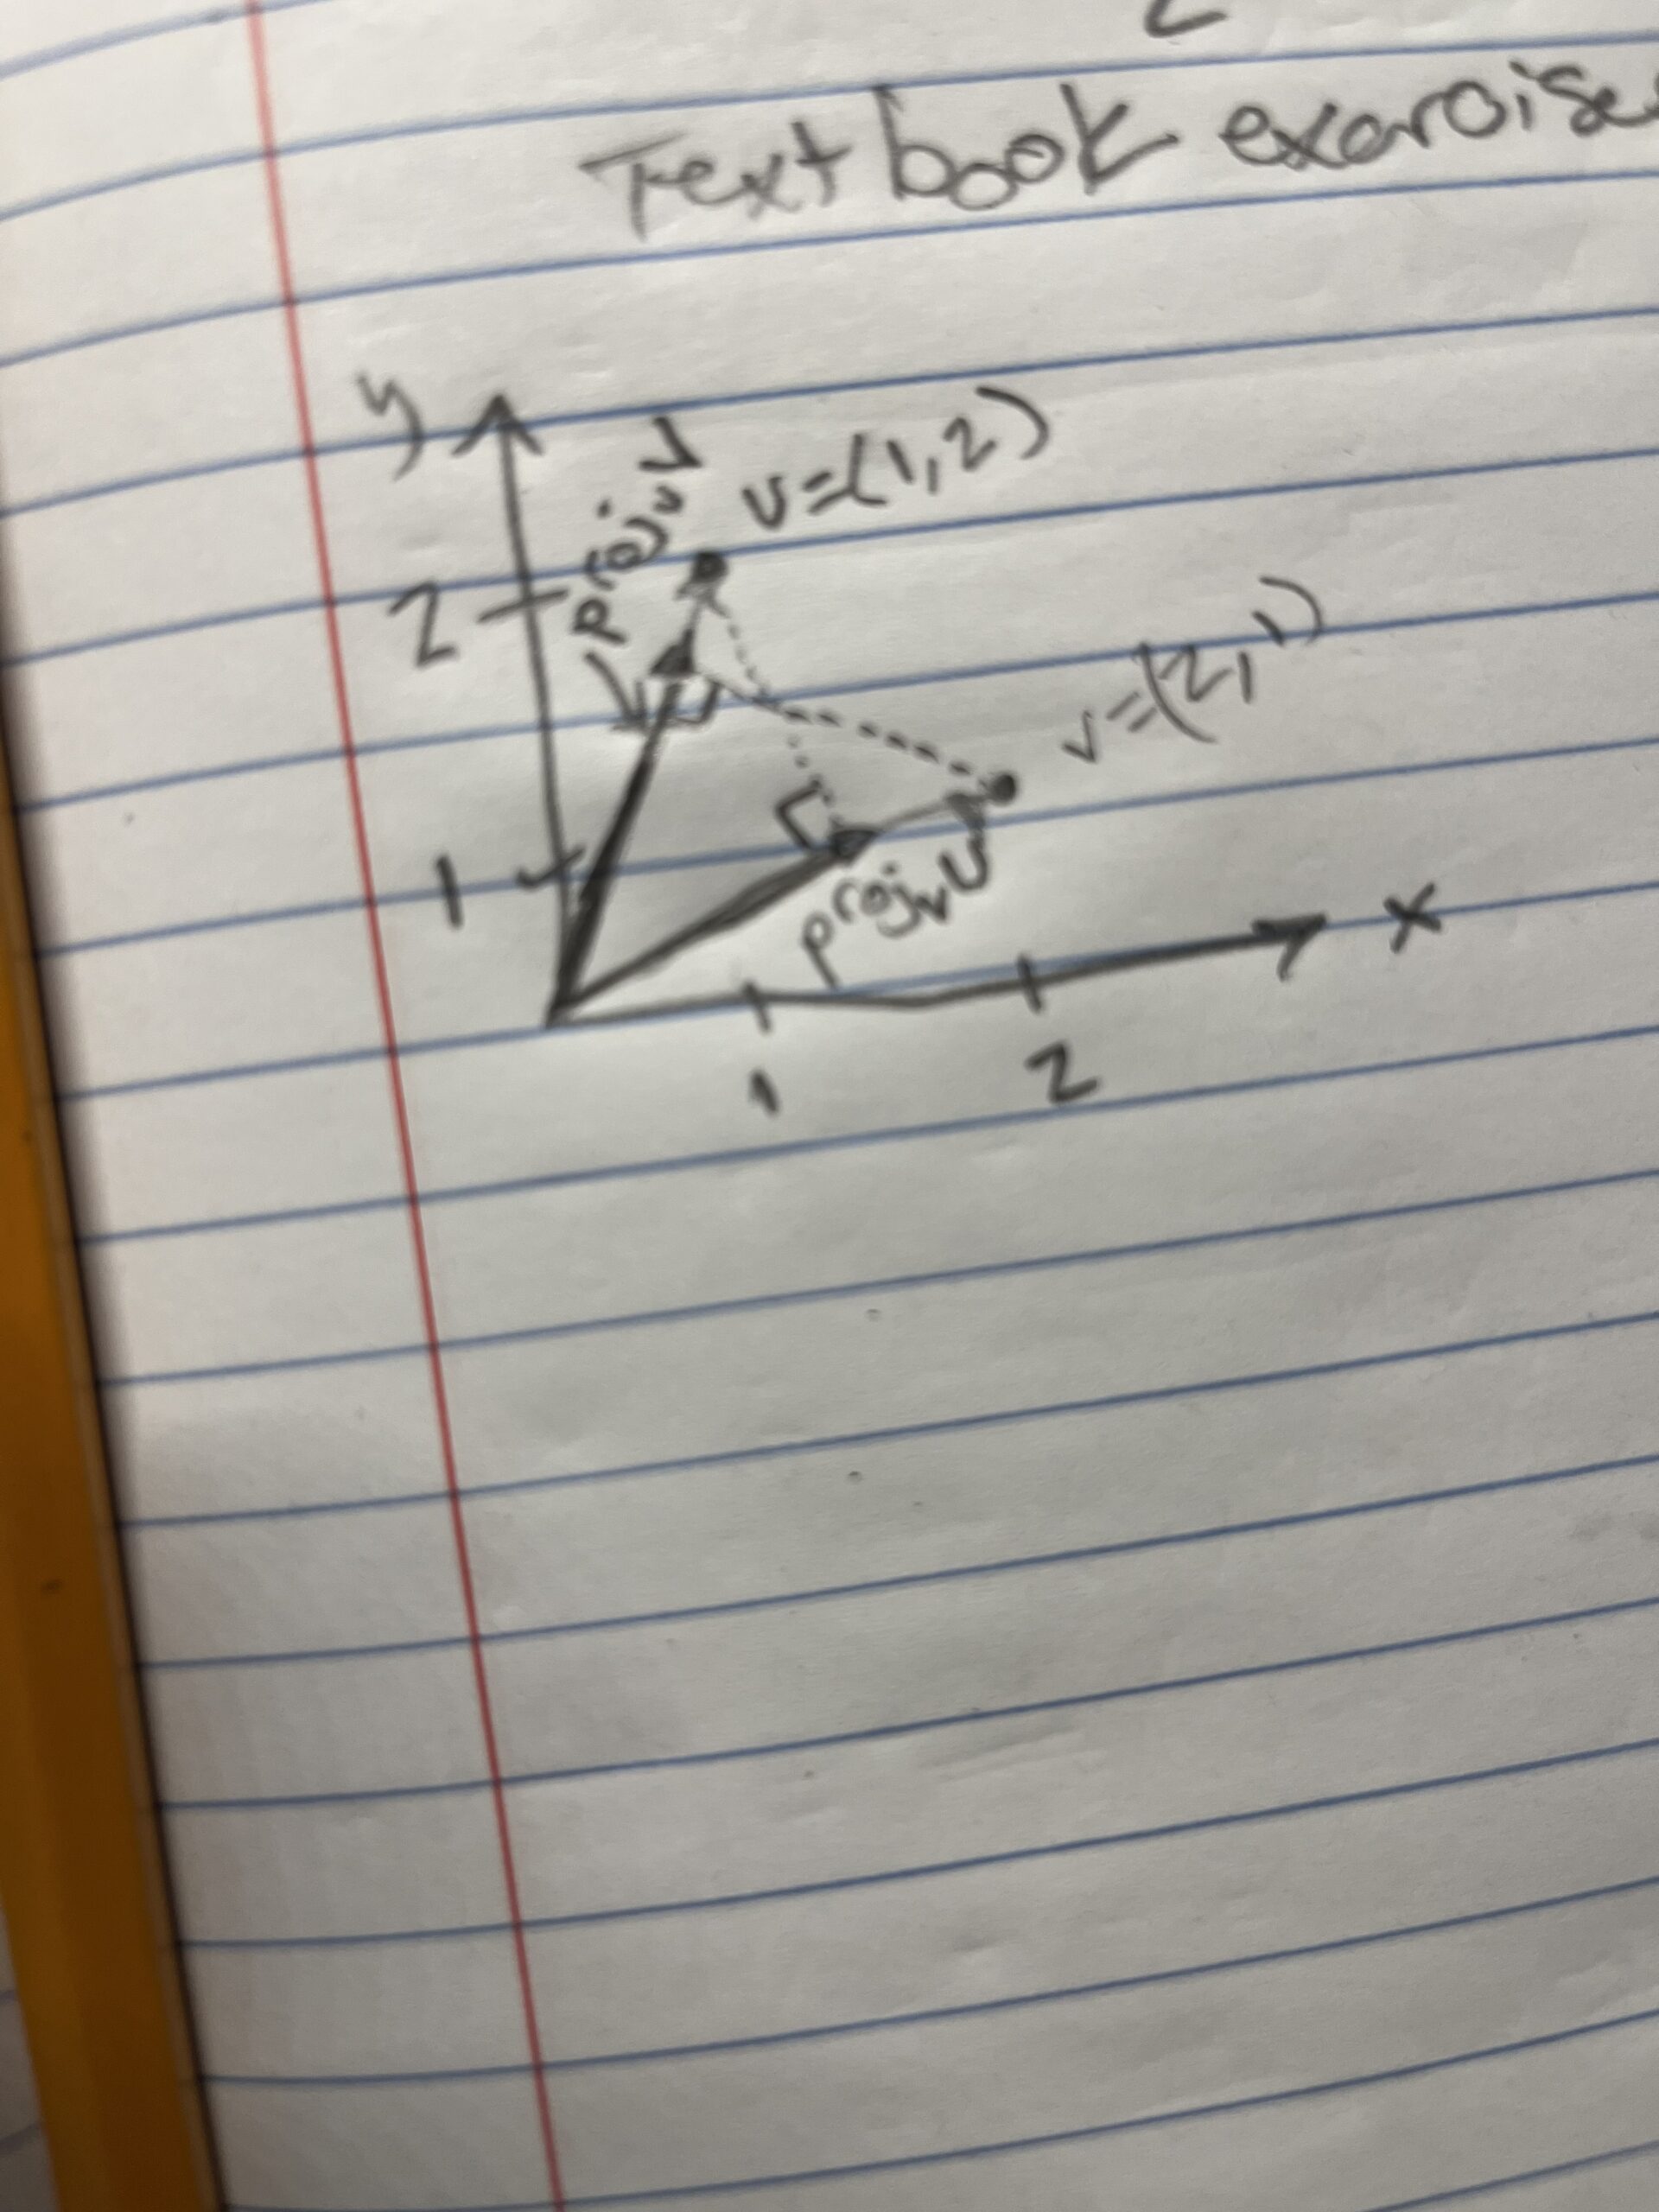 Textbook exercise
y
proj_u v
u=(1,2)
2
v=(2,1)
1
proj_v u
x
1
2